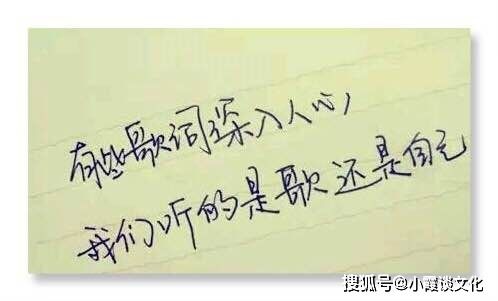 有些歌词深入人心
我们听的是歌还是自己
搜狐号@小霞谈文化